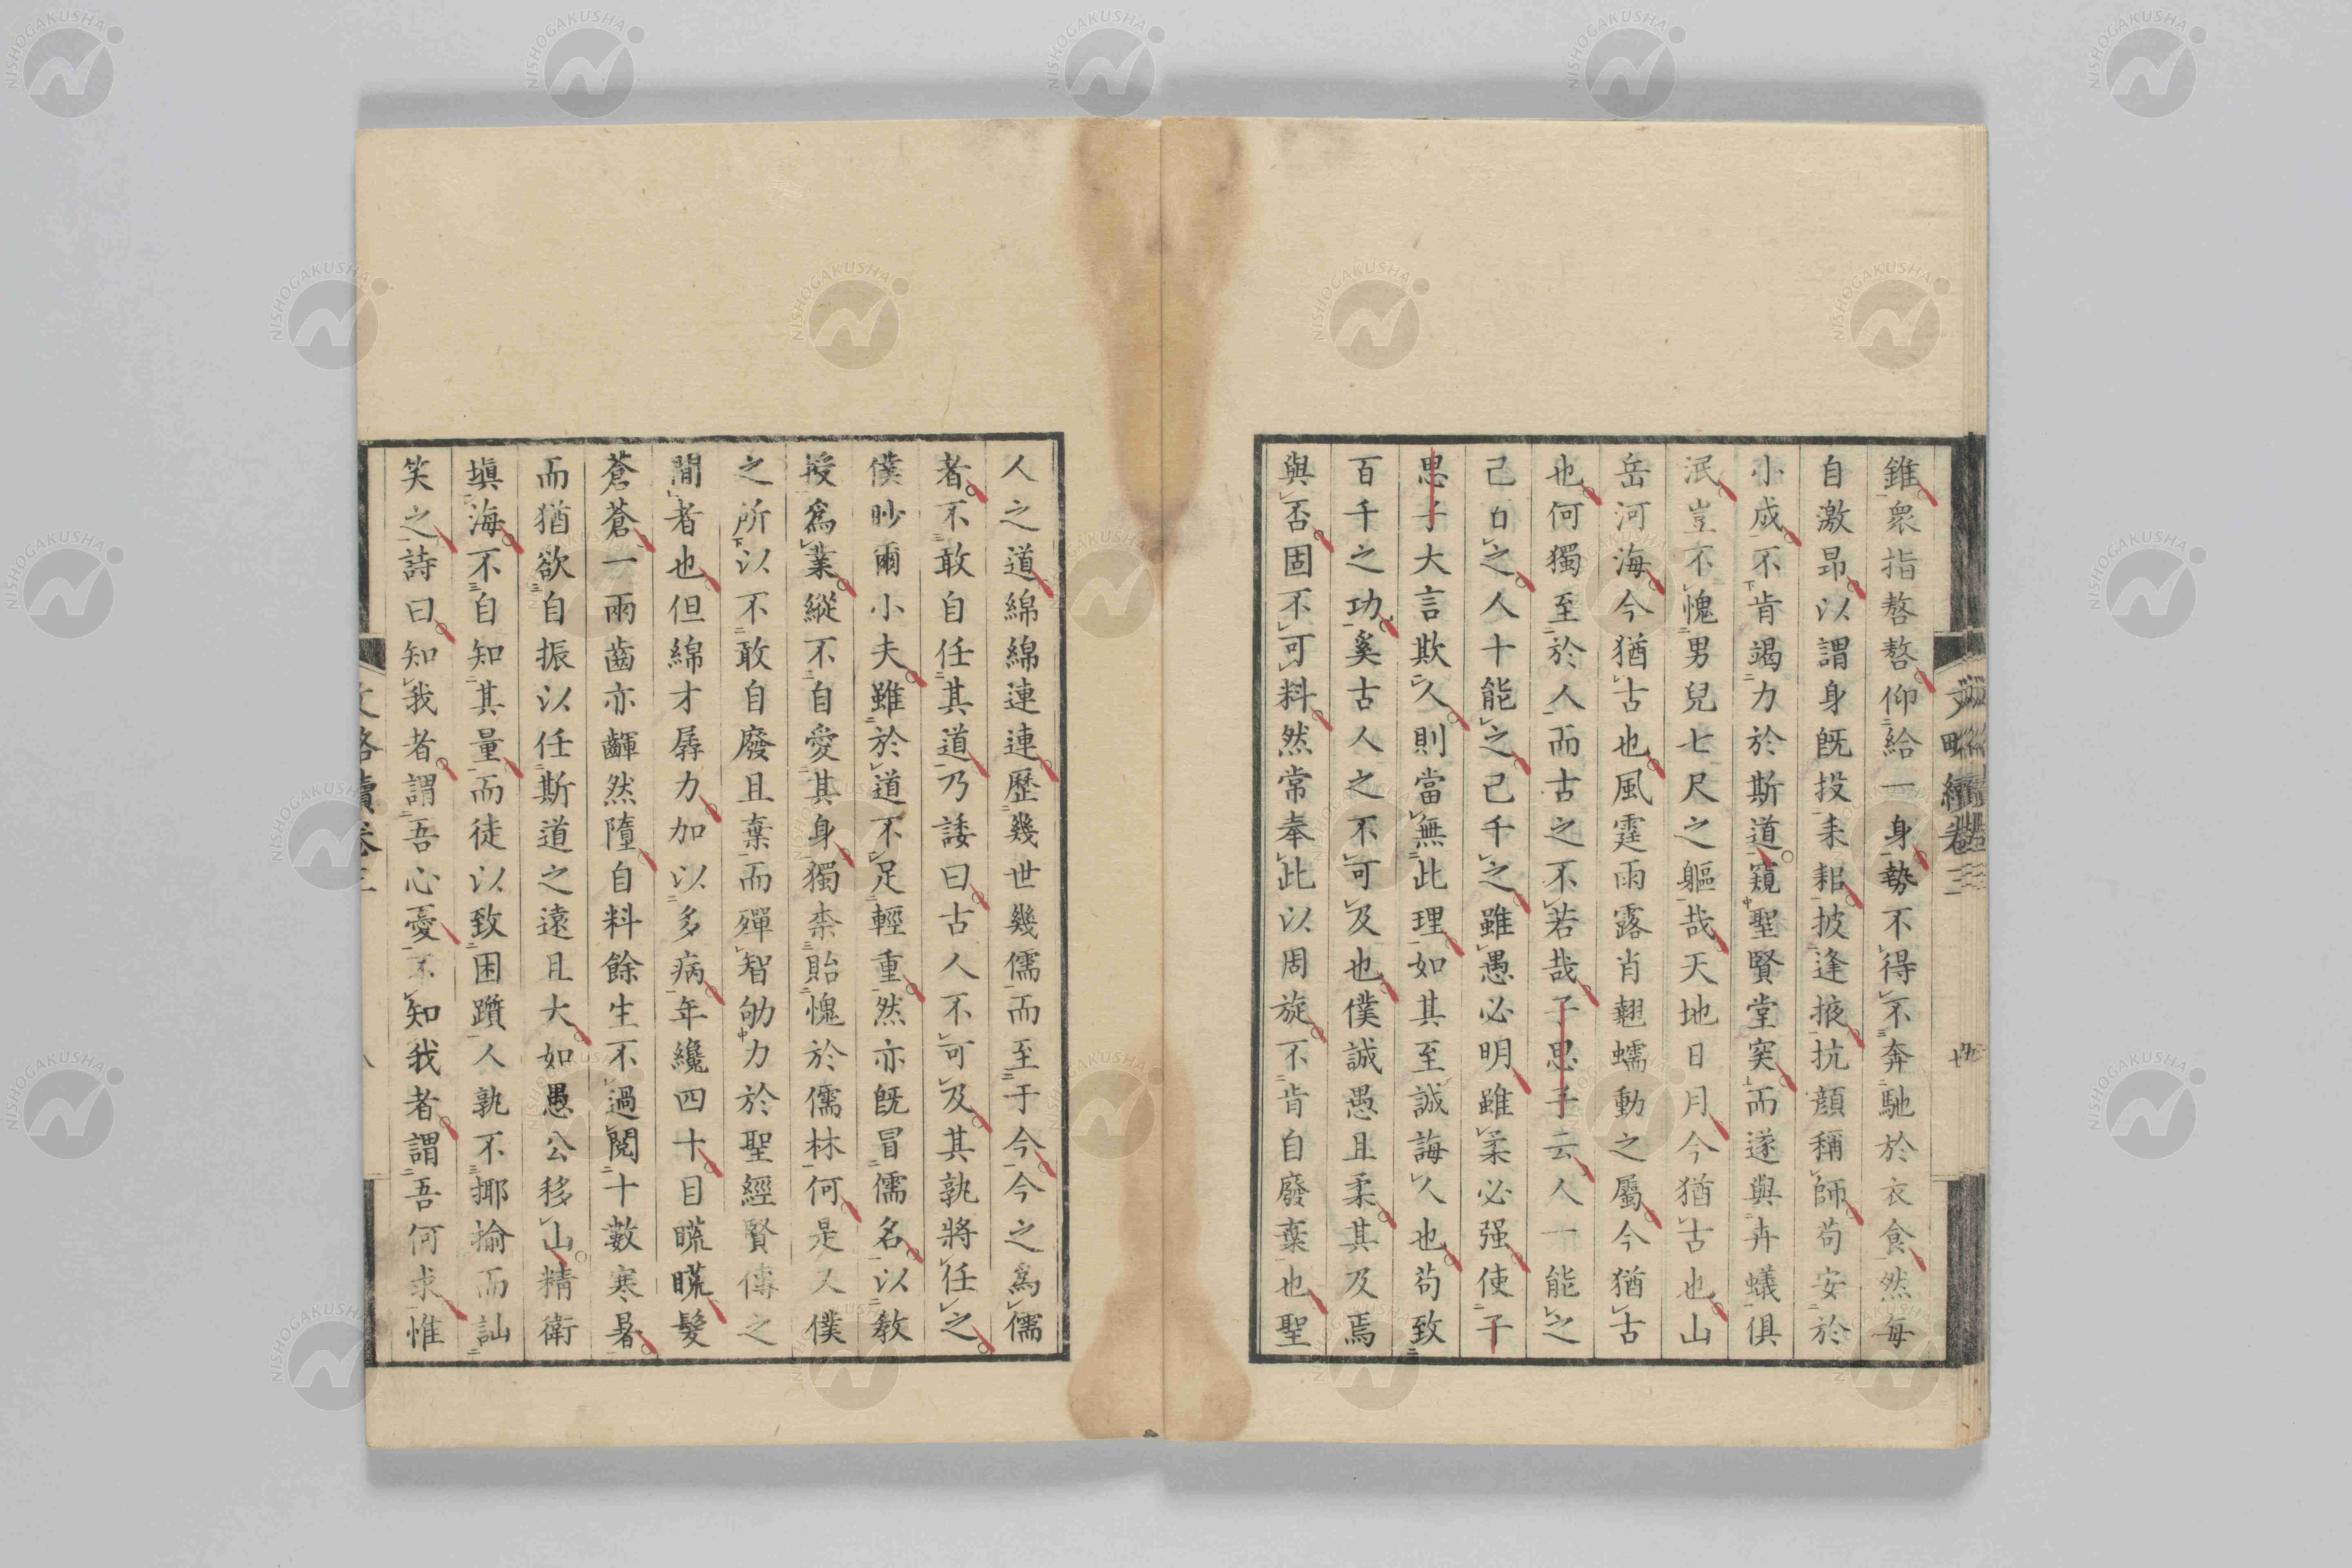 錐衆指嗸嗸仰給一身勢不得不奔馳於衣食然每
自激昂以謂身既投耒耜披逢掖抗顔稱師苟安於
小成不肯竭力於斯道窺聖賢堂突而遂與卉蟻俱
泯豈不愧男兒七尺之軀哉天地日月今猶古也山
岳河海今猶古也風霆雨露肖翹蠕動之屬今猶古
也何獨至於人而古之不若哉子思子云人一能之
己百之人十能之己千之雖愚必明雖柔必强使子
思子大言欺人則當無此理如其至誠誨人也苟致
百千之功奚古人之不可及也僕誠愚且柔其及焉
與否固不可料然常奉此以周旋不肯自廢棄也聖
人之道綿綿連連歷幾世幾儒而至于今今之爲儒
者不敢自任其道乃諉曰古人不可及其孰將任之
僕眇爾小夫雖於道不足輕重然亦既冒儒名以教
授爲業縱不自愛其身獨柰貽愧於儒林何是又僕
之所以不敢自廢且棄而殫智劬力於聖經賢傳之
間者也但綿才孱力加以多病年纔四十目䀮䀮髮
蒼蒼一兩齒亦齳然墮自料餘生不過閲十數寒暑
而猶欲自振以任斯道之遠且大如愚公移山精衛
塡海不自知其量而徒以致困躓人孰不揶揄而訕
笑之詩曰知我者謂吾心憂不知我者謂吾何求惟
文略續卷三
八
NISHOGAKUSHA